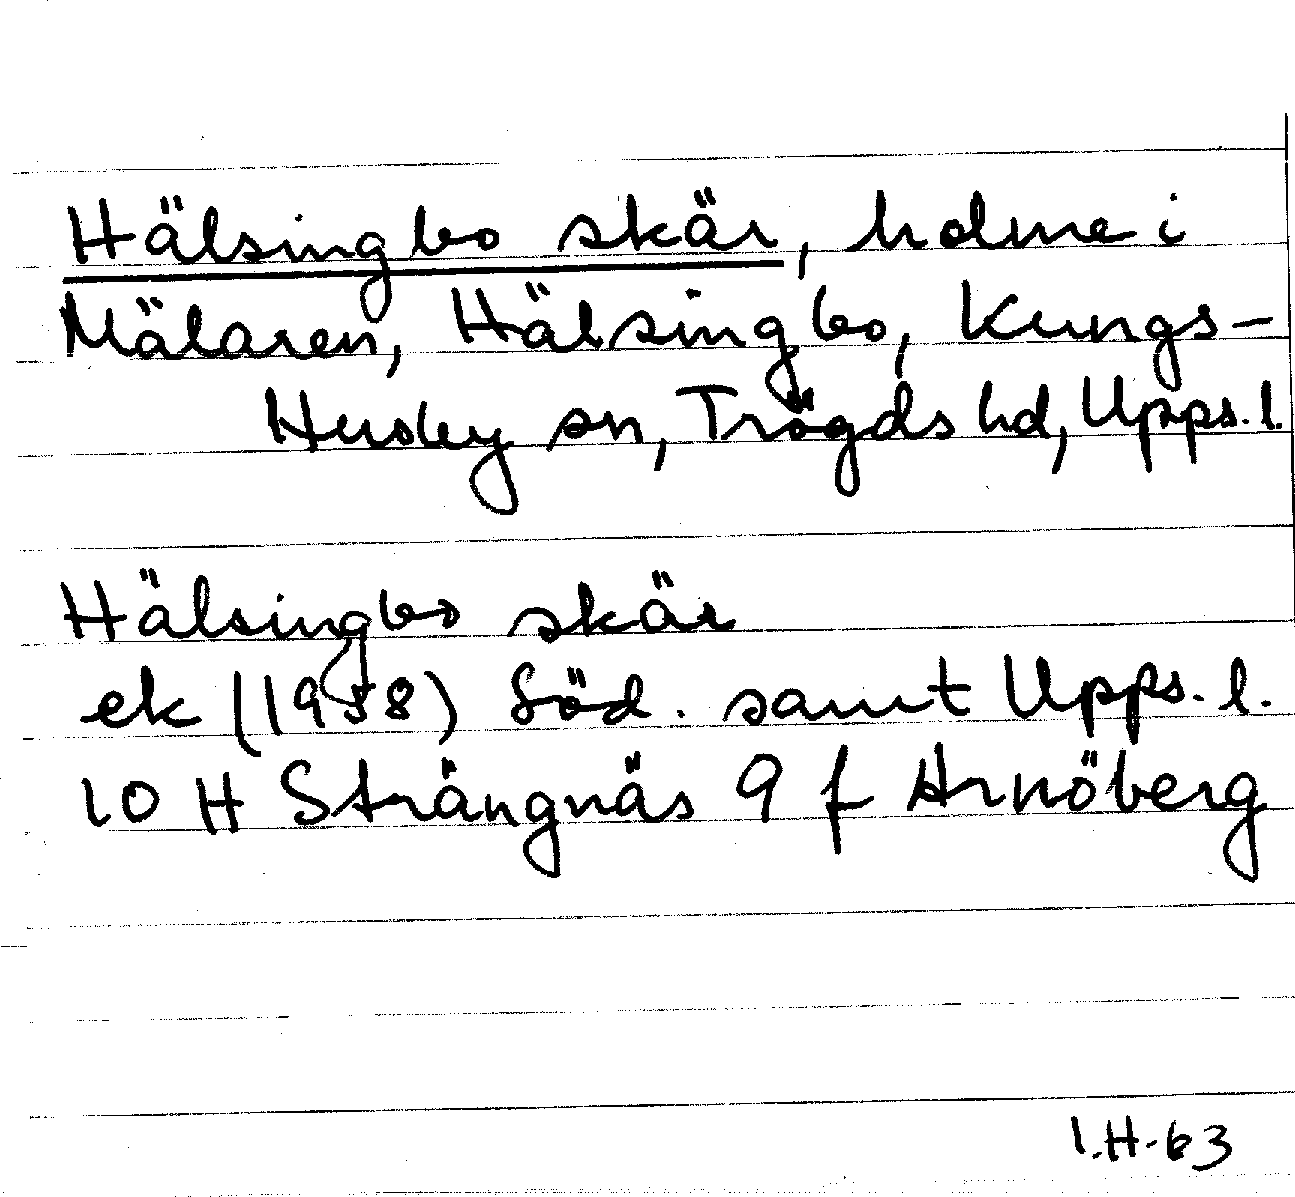 Hälsingbo skär, holme i
Mälaren, Hälsingbo, Kungs-
Husby sn, Trögds hd, Upps. l.
Hälsingbo skär
ek (1958) Söd. samt Upps. l.
10 H Strängnäs 9 f Arnöberg
I.H-63